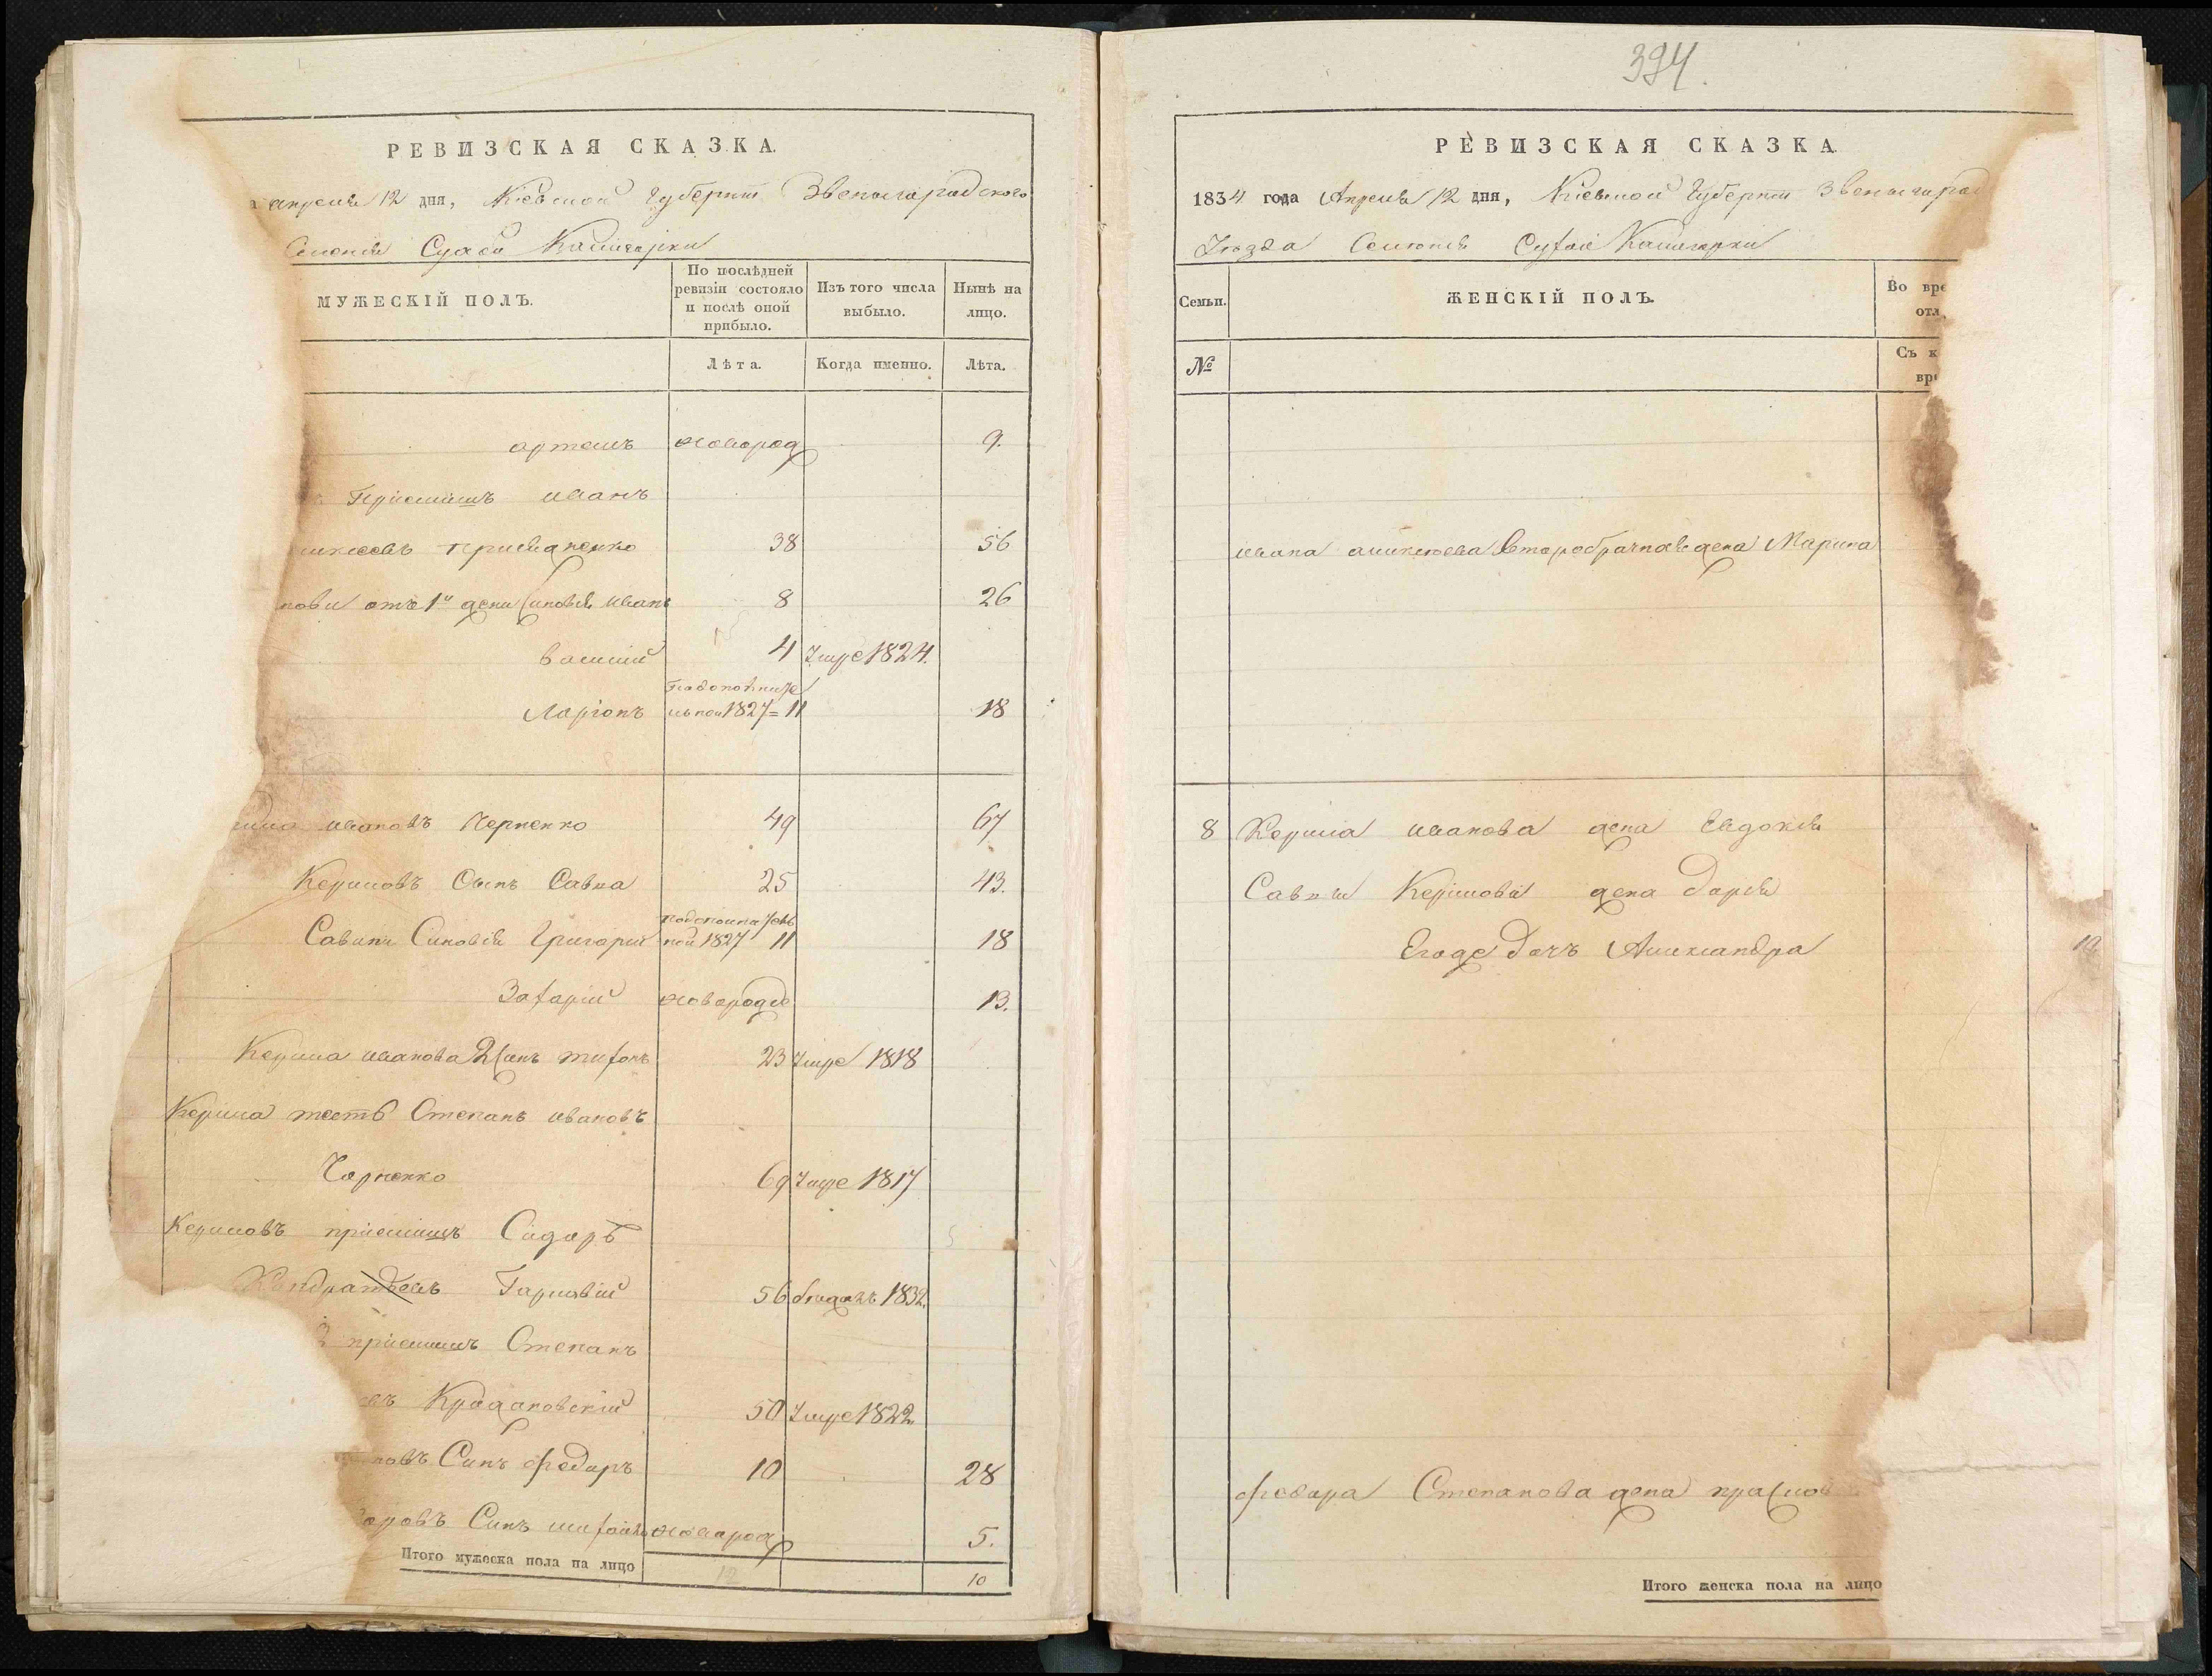 РЕВИЗСКАЯ СКАЗКА.
апреля 12 дня, Кіевской Губерніи Звенигарадского
Селенія Сухой Калигорки
МУЖЕСКІЙ ПОЛЪ.
По послѣдней ревизіи состояло и послѣ оной прибыло.
Изъ того числа выбыло.
Нынѣ на лицо.
Лѣта.
Когда именно.
Лѣта.
артемъ новород 9.
Пріемишъ иванъ
38 56
отъ 1й жени Синовія иванъ 8 26
василій 4 Умре 1824.
Ларіонъ 1827 = 11 18
ивановъ Черненко 49 67
Керимовъ Сынъ Савка 25 43.
Савини Синовія Григорій 1827 11 18
Захарій новорожде 13.
Керима иванова 2 Синъ тихонъ 23 Умре 1818
Керима тесть Степанъ ивановъ
Чорненко 69 Умре 1817
Керимовъ пріемишъ Сидоръ
56 1832.
пріемишъ Степанъ
Кражановскій 50 Умре 1822
Синъ федаръ 10 28
Синъ михайло новорож 5.
Итого мужеска пола на лицо 12 10
394.
РЕВИЗСКАЯ СКАЗКА
1834 года Апреля 12 дня, Кіевской Губерніи Звенигарад
Уѣзда Селенія Сухой Калигорки
Семьи.
ЖЕНСКІЙ ПОЛЪ.
Во вре
отл
№
Съ к
вре
ивана аликсеева второбрачная жена Марина
8 Керима иванова жена Евдокія
Савки Керимова жена дарія
Егоже дочъ Александра
федара Степанова жена
Итого женска пола на лицо